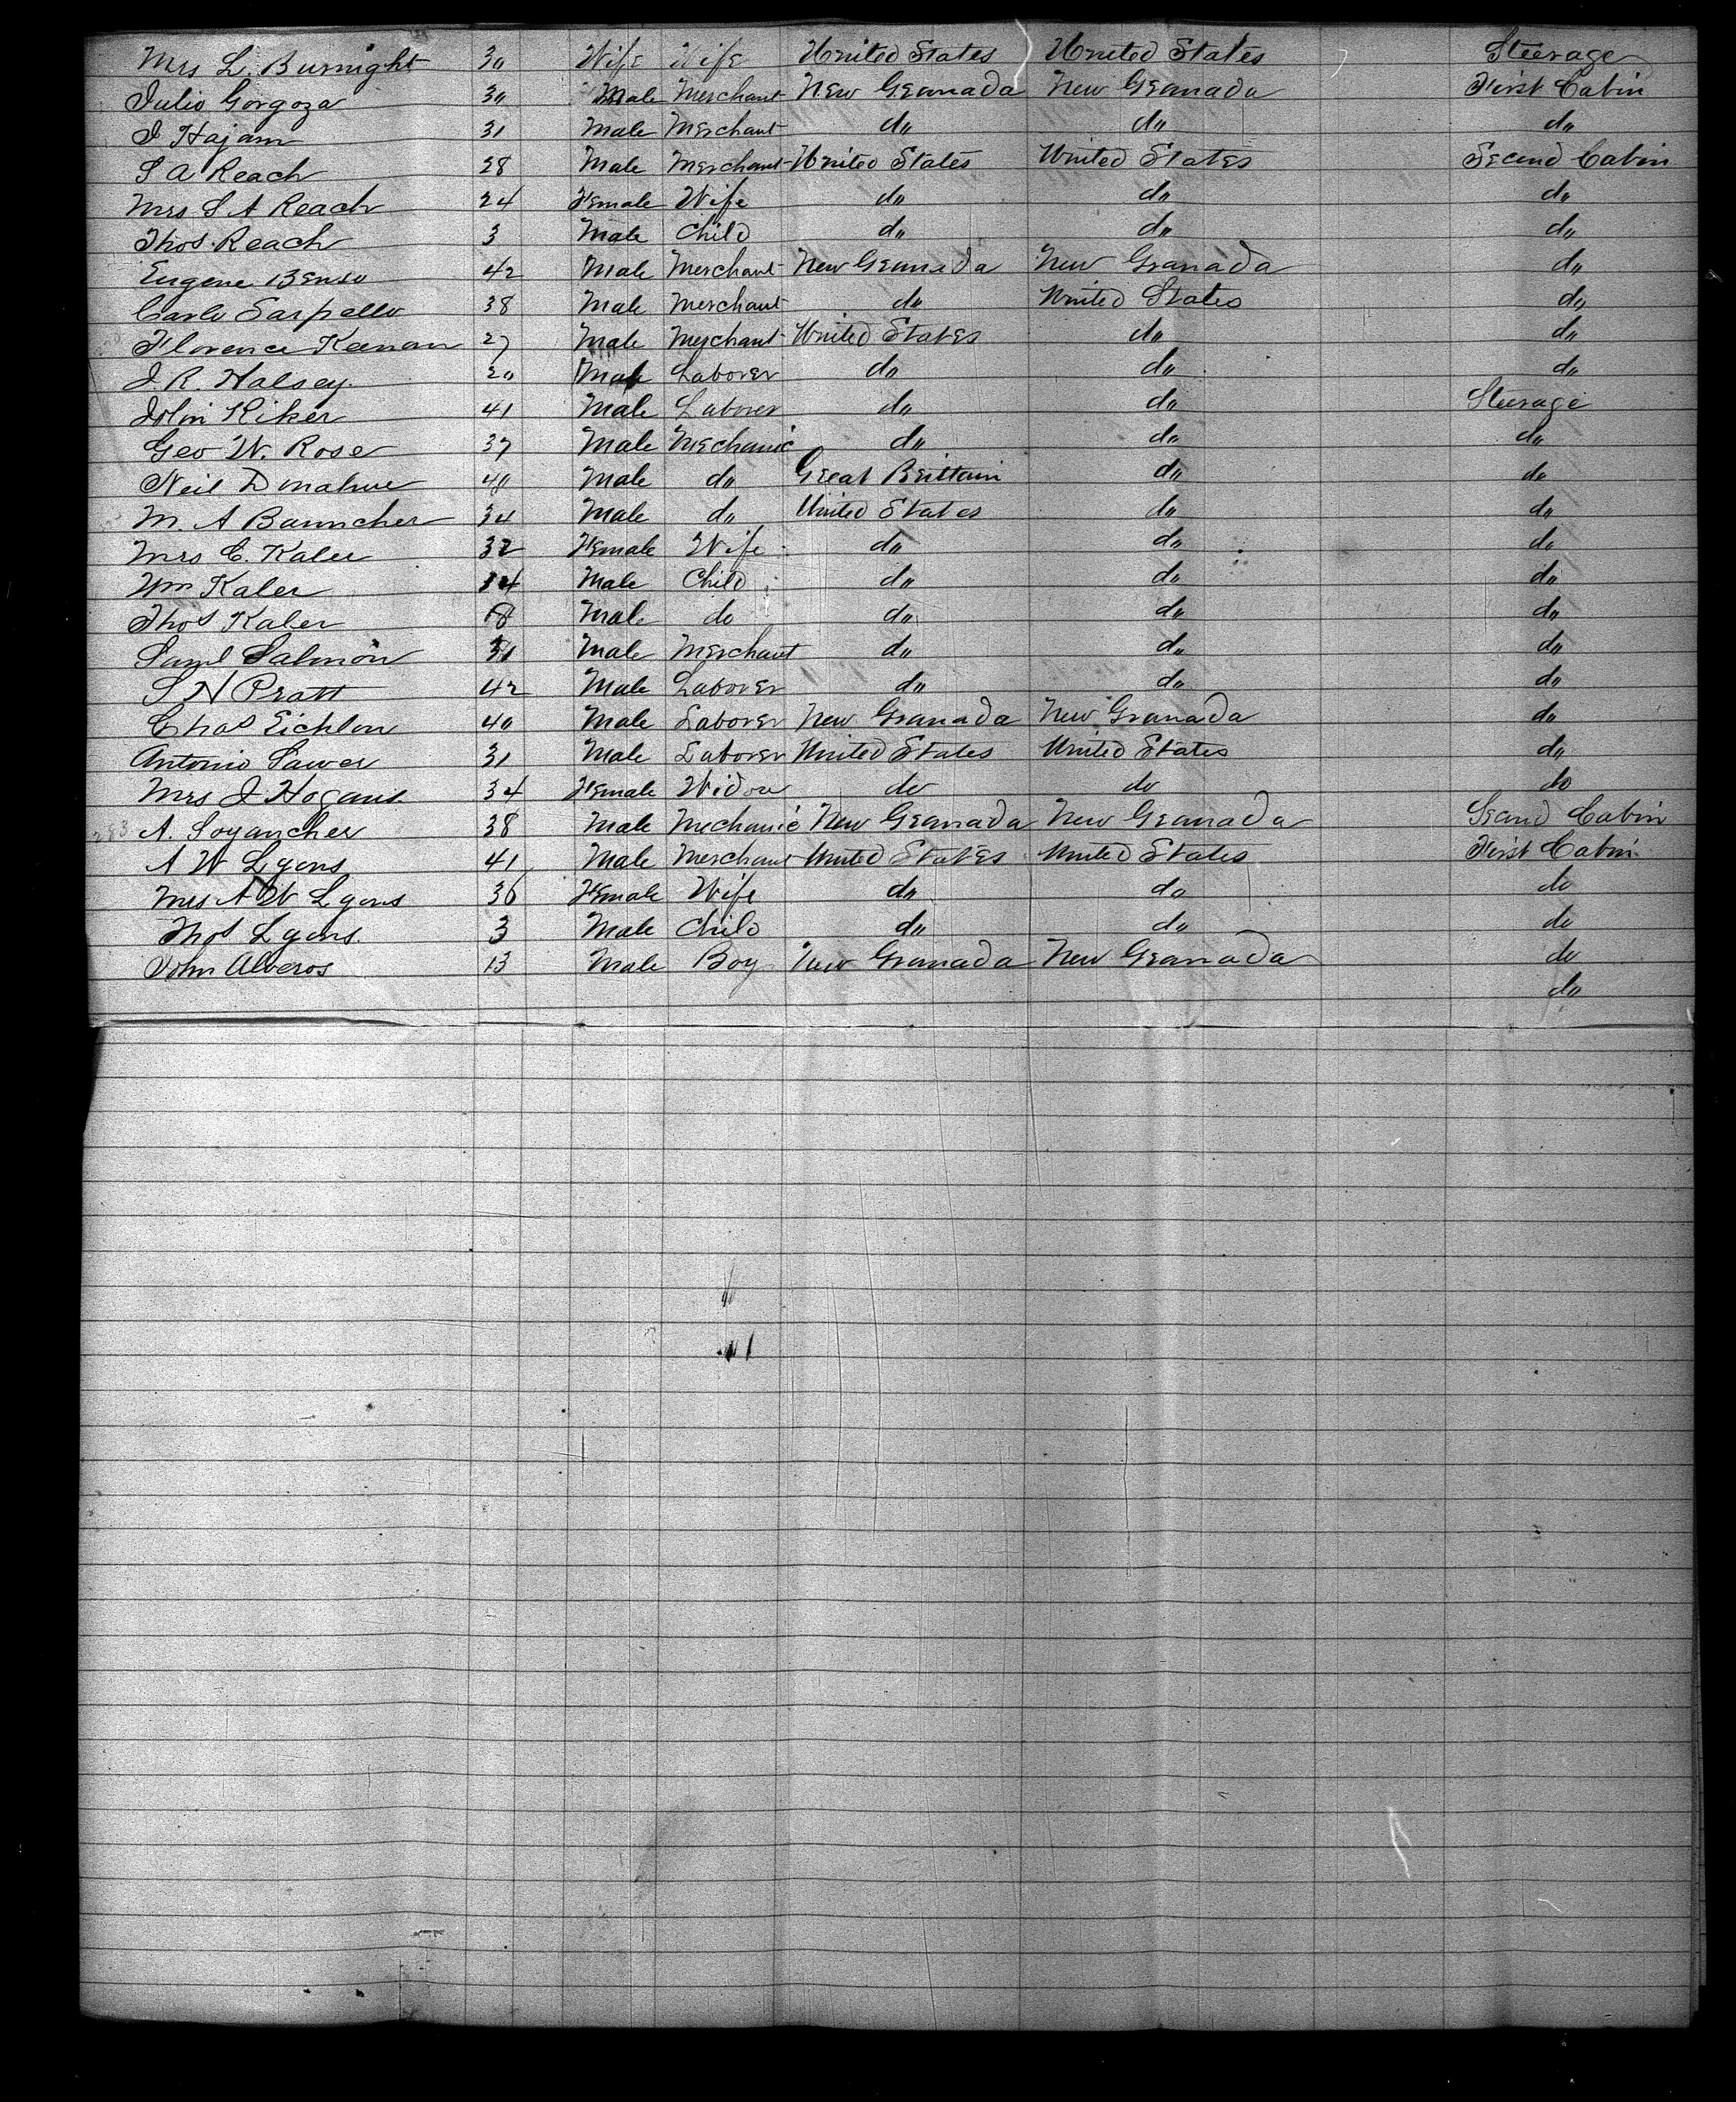 Mrs L. Burnight 30 Wife Wife United States United States Steerage
Julio Gorgoza 30 Male Merchant New Granada New Granada First Cabin
J Hajam 31 Male Merchant do do do
S A Reach 28 Male Merchant United States United States Second Cabin
Mrs S A Reach 24 Female Wife do do do
Thos Reach 3 Male Child do do do
Eugene Benso 42 Male Merchant New Granada New Granada do
Carlo Sarpello 38 Male Merchant do United States do
Florence Keenan 27 Male Merchant United States do do
J. R. Halsey 20 Male Laborer do do do
John Riker 41 Male Laborer do do Steerage
Geo W. Rose 37 Male Mechanic do do do
Neil Donahue 40 Male do Great Brittain do do
M. A Bauncher 34 Male do United States do do
Mrs C. Kaler 32 Female Wife do do do
Wm Kaler 14 Male Child do do do
Thos Kaler 8 Male do do do do
Saml Salmon 31 Male Merchant do do do
S N Pratt 42 Male Laborer do do do
Chas Eichlon 40 Male Laborer New Granada New Granada do
Antonio Sawer 31 Male Laborer United States United States do
Mrs J Hogans 34 Female Widow do do do
283 A. Soyancher 38 Male Mechanic New Granada New Granada Secand Cabin
A W Lyons 41 Male Merchant United States United States First Cabin
Mrs A W Lyons 36 Female Wife do do do
Thos Lyons 3 Male Child do do do
John Alveros 13 Male Boy New Granada New Granada do
do